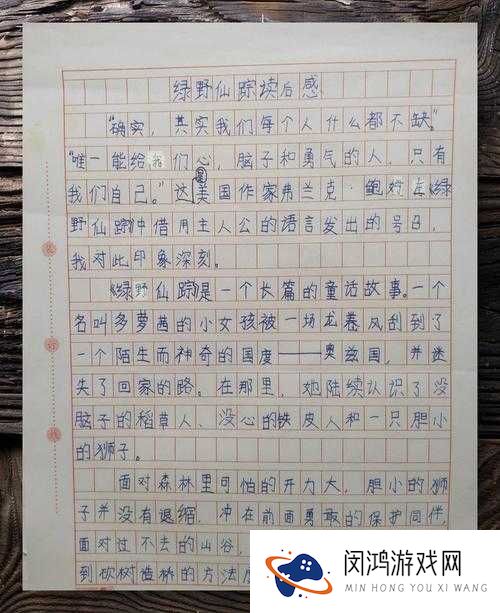 绿野仙踪读后感
“确实，其实我们每个人什么都不缺。”
“唯一能给我们心，脑子和勇气的人，只有
我们自己。”这是美国作家弗兰克·鲍姆在《绿
野仙踪》中借用主人公的语言发出的号召，
我对此印象深刻。
《绿野仙踪》是一个长篇的童话故事。一个
名叫多萝茜的小女孩被一场龙卷风刮到了
一个陌生而神奇的国度——奥兹国，并迷
失了回家的路。在那里，她陆续认识了没
脑子的稻草人、没心的铁皮人和一只胆小
的狮子。
面对森林里可怕的开力大，胆小的狮
子并没有退缩，冲在前面勇敢的保护同伴，
面对过不去的山谷，
到砍树造桥的方法
闵鸿游戏网
MIN HONG YOU XI WANG